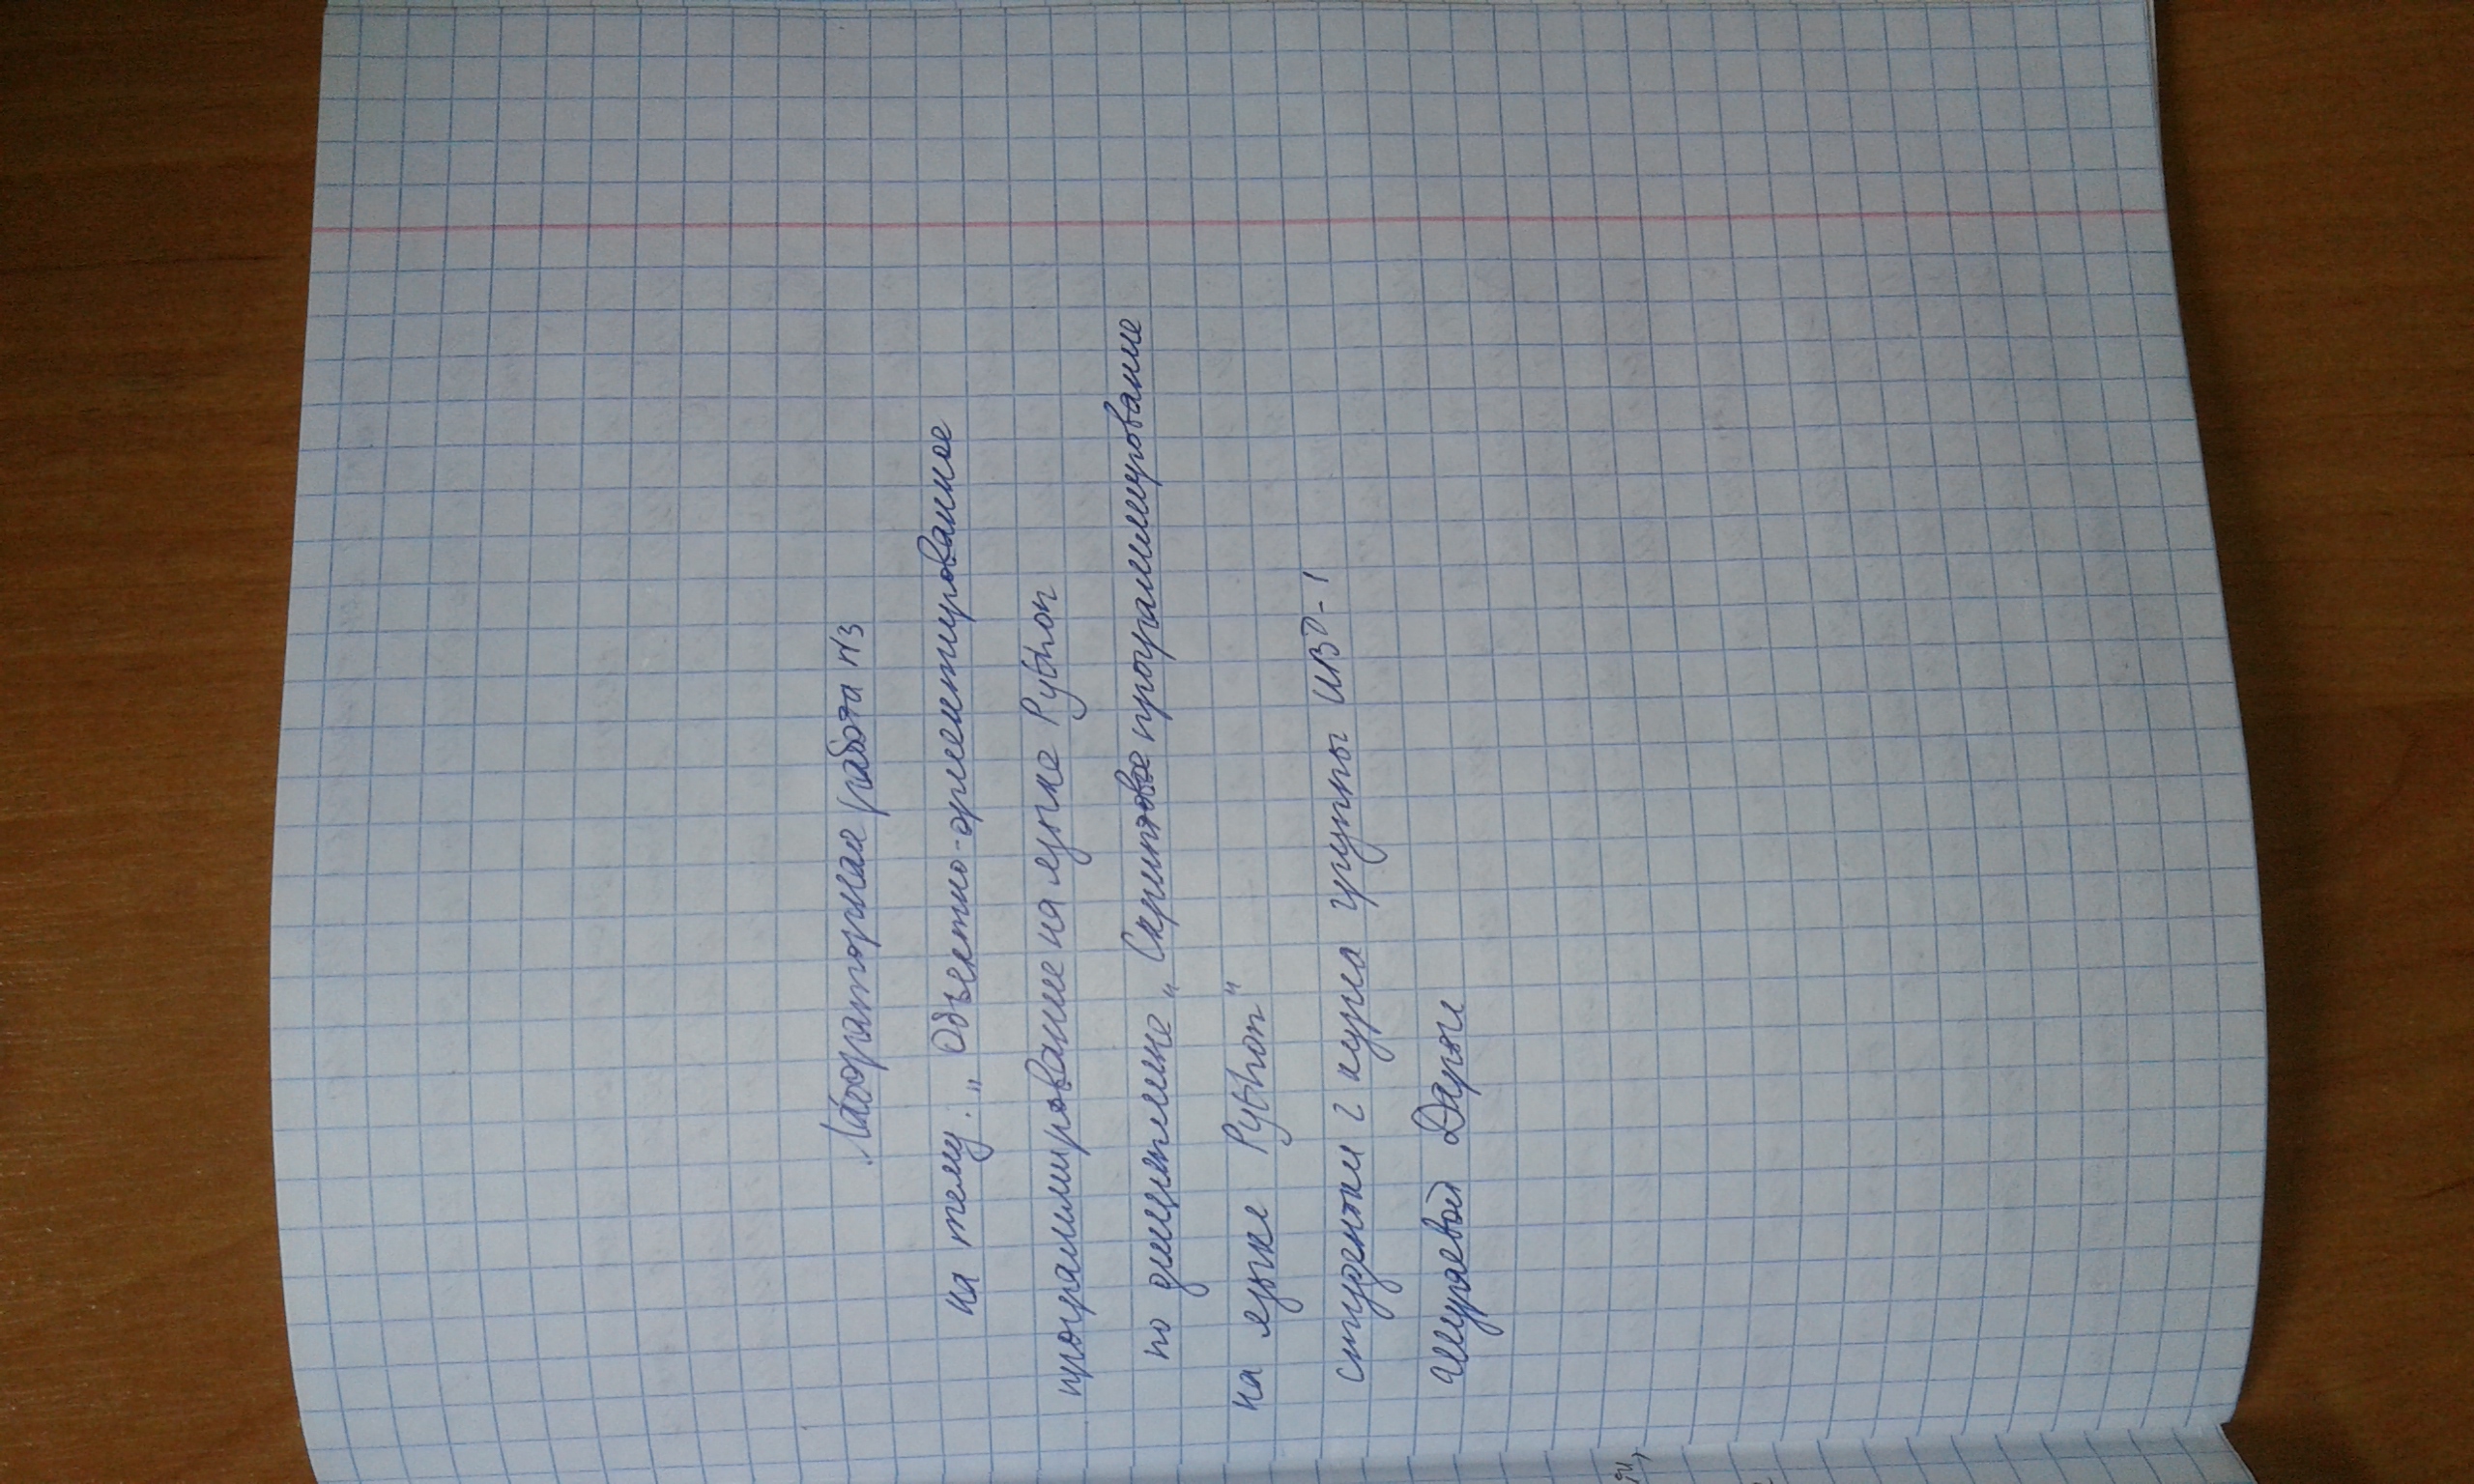 Лабораторная работа N3
на тему: „Объектно-ориентированное
программирование на языке Python
по дисциплине „Скриптовое программирование
на языке Python"
студентки 2 курса группы ИВТ-1
Дарьи